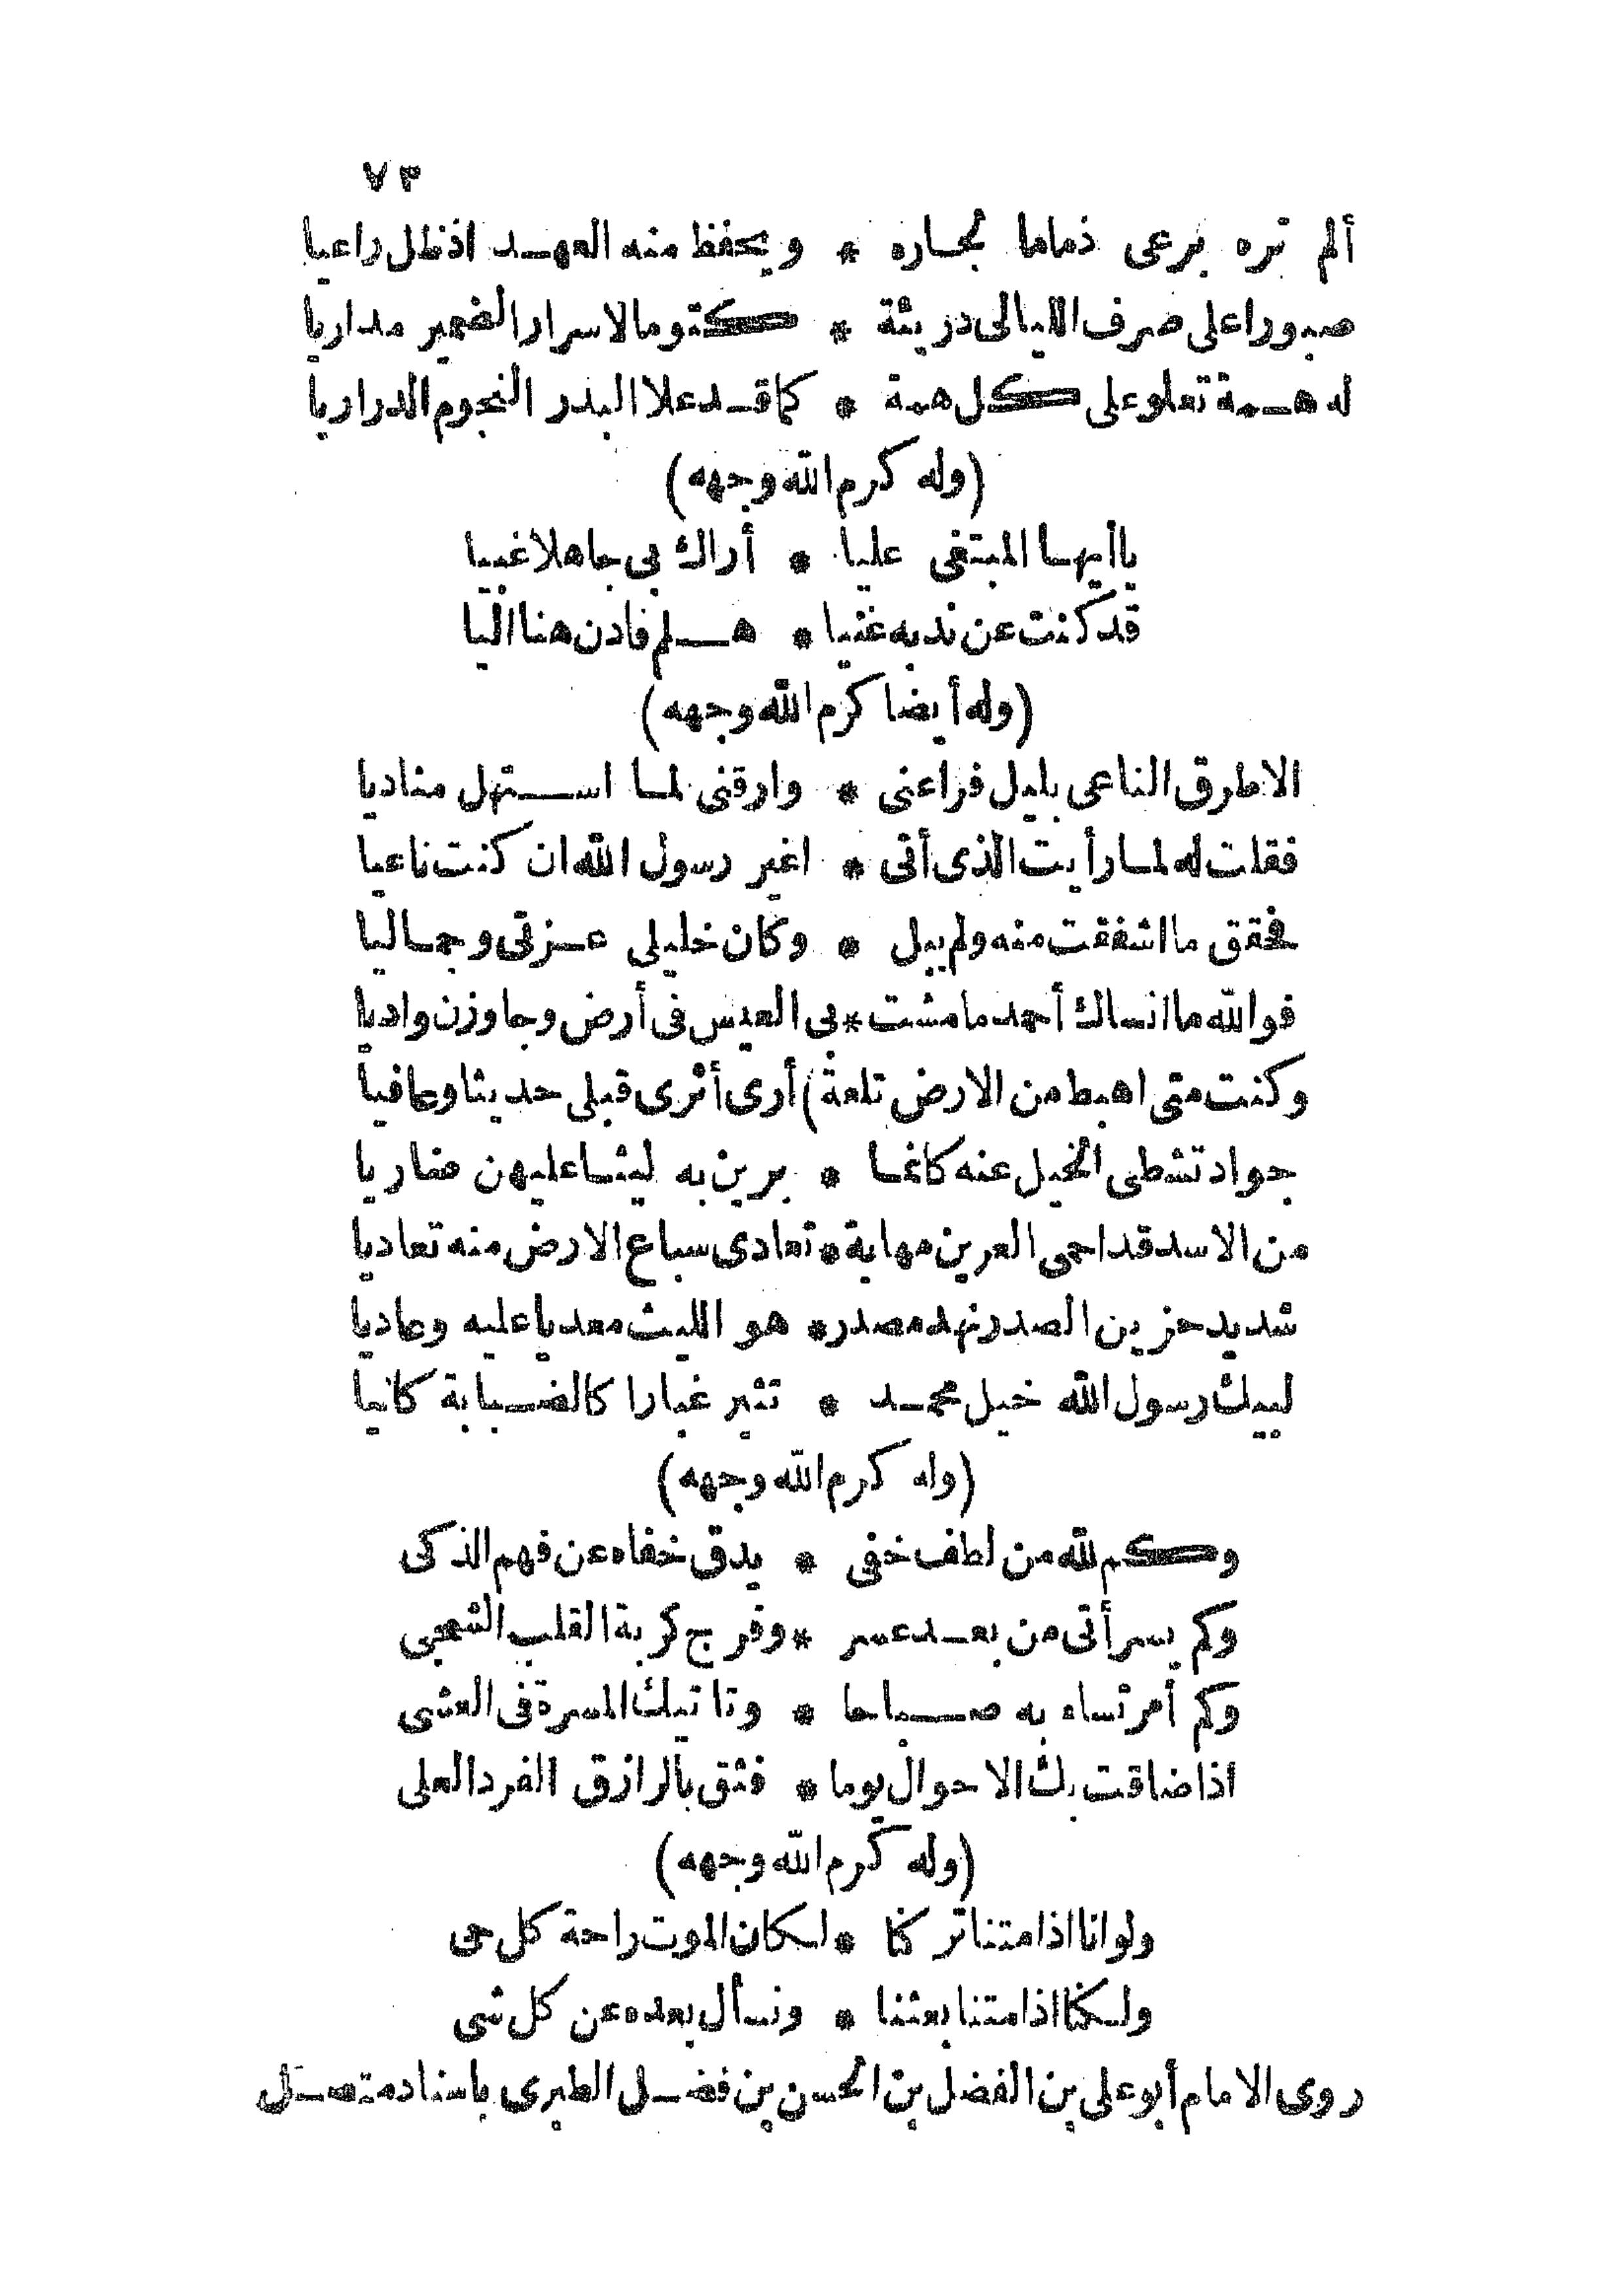 ٧٣
ألم تره يرعى ذماما لجاره * ويحفظ منه العهد اذ ظل راعيا
صبورا على صرف الليالى دريئة * كتوما لاسرار الضمير مداريا
له همة تعلو على كل همة * كما قد علا البدر النجوم الدراريا
(وله كرم الله وجهه)
يا أيها المبتغى عليا * أراك بى جاهلا غبيا
قد كنت عن ندبه غنيا * هلم فادن هنا اليا
(وله أيضا كرم الله وجهه)
الا طرق الناعى بليل فراعنى * وارقنى لما استهل مناديا
فقلت له لما رأيت الذى أتى * اغير رسول الله ان كنت ناعيا
فحقق ما اشفقت منه ولم يبل * وكان خليلى عزتى وجماليا
فوالله ما انساك أحمد ما مشت * بى العيس فى أرض وجاوزن واديا
وكنت متى اهبط من الارض تلعة) أرى أثرى قبلى حديثا وعافيا
جواد تشظى الخيل عنه كانما * يرين به ليثا عليهن ضاريا
من الاسد قد احمى العرين مهابة * تعادى سباع الارض منه تعاديا
شديد حزين الصدر نهد مصدر * هو الليث معديا عليه وعاديا
لييك رسول الله خيل محمد * تثير غبارا كالضبابة كانيا
(وله كرم الله وجهه)
وكم لله من لطف خفى * يدق خفاه عن فهم الذكى
وكم يسر أتى من بعد عسر * وفرج كربة القلب الشجى
وكم أمر تساء به صباحا * وتاتيك المسرة فى العشى
اذا ضاقت بك الاحوال يوما * فثق بالرازق الفرد العلى
(وله كرم الله وجهه)
ولو انا اذا متنا تركنا * لكان الموت راحة كل حى
ولكنا اذا متنا بعثنا * ونسأل بعده عن كل شى
روى الامام أبو على بن الفضل بن الحسن بن فضل الطبرى باسناد متصل